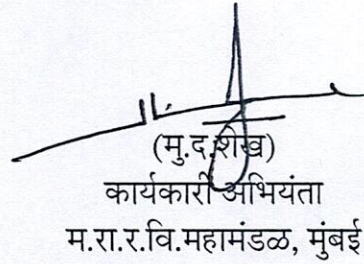 (मु.द.शेख)
कार्यकारी अभियंता
म.रा.र.वि.महामंडळ, मुंबई